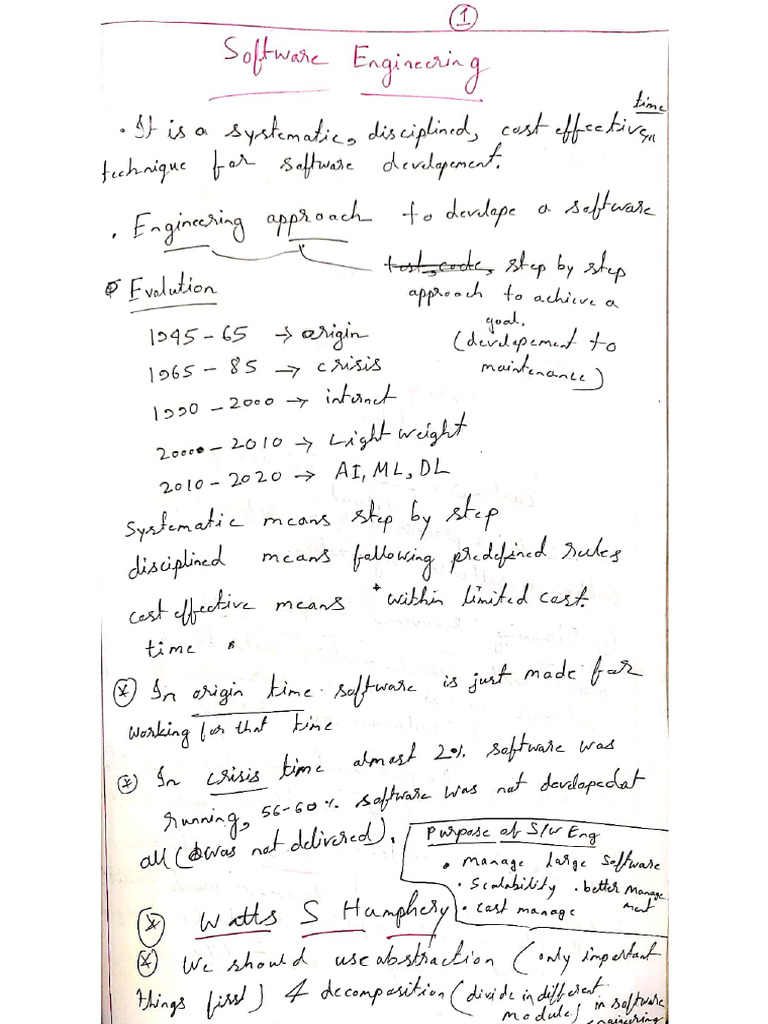 1
Software Engineering
time
. It is a systematic, disciplined, cost effective,
technique for software developement.
. Engineering approach to develope a software
test, code, step by step
approach to achieve a
goal.
(developement to
maintenance)
Evalution
1945-65 → origin
1965-85 → crisis
1990-2000 → internet
2000-2010 → Light weight
2010-2020 → AI, ML, DL
Systematic means step by step
disciplined means following predefined rules
cost effective means * within limited cost.
time "
* In origin time software is just made for
working for that time
* In crisis time almost 2% software was
running, 56-60% software was not developed at
all (was not delivered).
Purpose of S/W Eng
• manage large software
• Scalability • better manage
ment
• cost manage
* Watts S Humphery
* We should use abstraction (only important
things first) & decomposition (divide in different
modules) in software